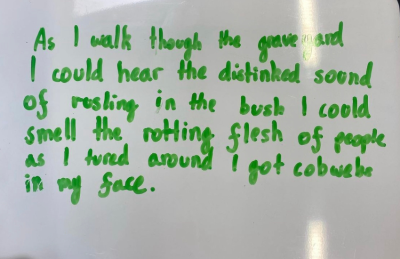 As I walk though the graveyard
I coold hear the distinked soond
of rosling in the bush I coold
smell the rotting flesh of people
as I tured around I got cobwebs
in my face.